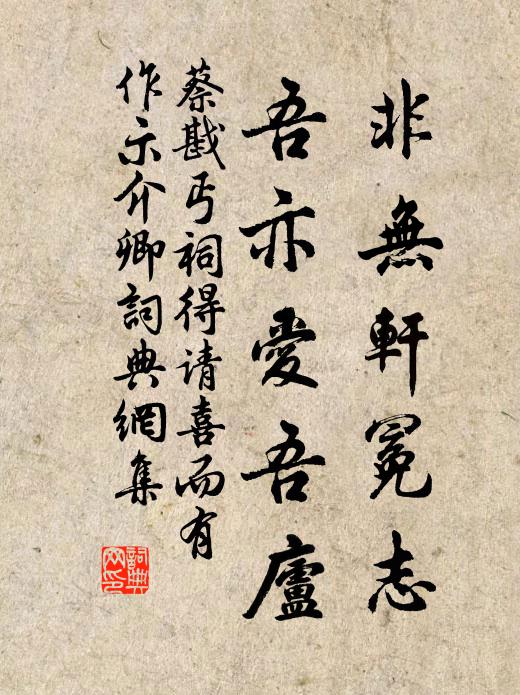 非無軒冕志
吾亦愛吾廬
蔡戡丐祠得请喜而有
作示介卿詞典網集
詞典
网印